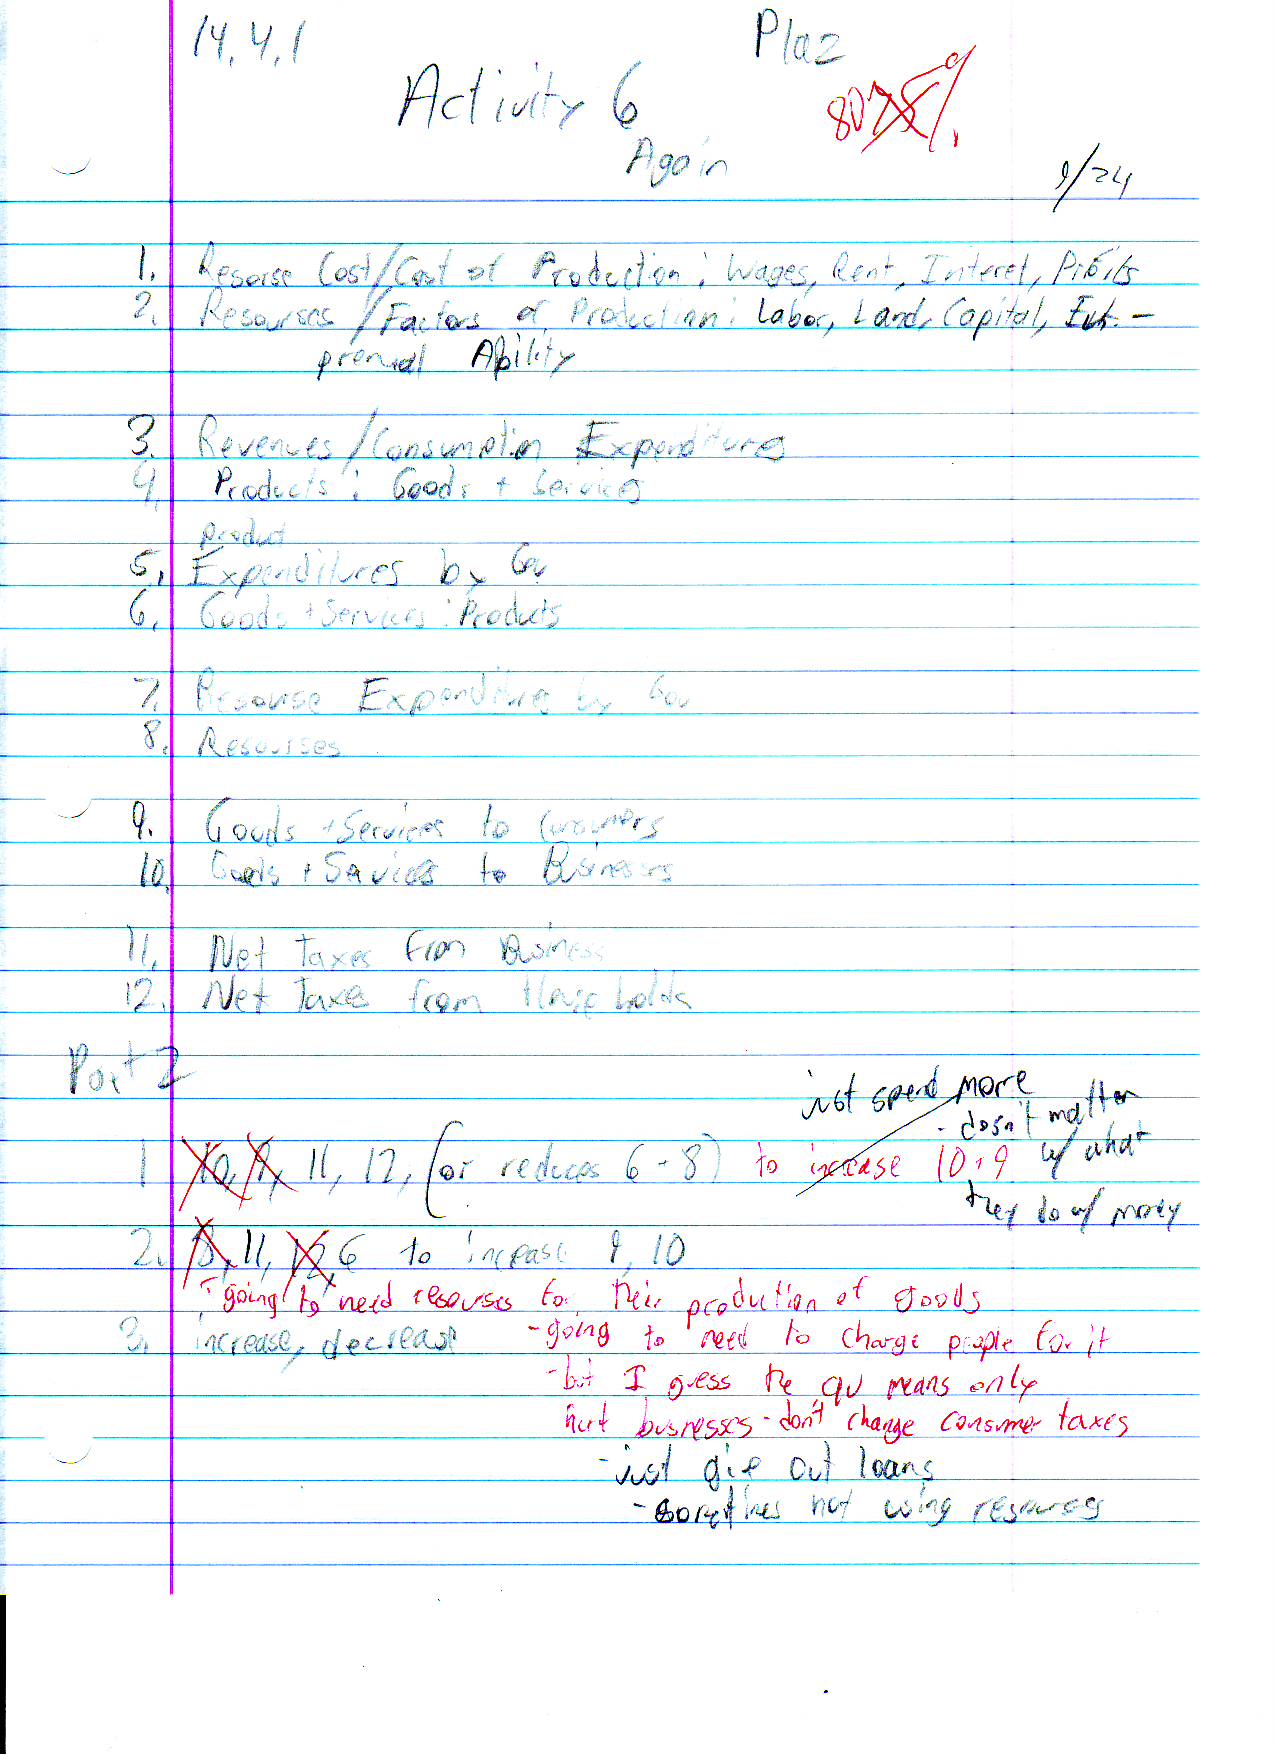 14.4.1
Plaz
Activity 6
80 75%
Again
9/24
1. Resorse Cost/Cost of Production: Wages, Rent, Interet, Profits
2. Resourses /Factors of Production: Labor, Land, Capital, Ent.-
prenual Ability
3. Revenues/Consumption Expenditures
4. Products: Goods + Services
product
5. Expenditures by Gov
6. Goods + Services: Products
7. Resourse Expenditures by Gov
8. Resourses
9. Goods + Services to Consumers
10. Goods + Services to Businesses
11. Net Taxes from Business
12. Net Taxes from Households
Part 2
just spend more
- dosn't matter
1 10, 9, 11, 12, (or reduces 6-8) to increase 10,9 w/ what
they do w/ money
2. 8, 11, 12, 6 to increase 9, 10
- going to need resourses for their production of goods
3. increase, decrease - going to need to charge people for it
- but I guess the qu means only
hurt businesses - don't change consumer taxes
- just give out loans
- sometimes not using resources